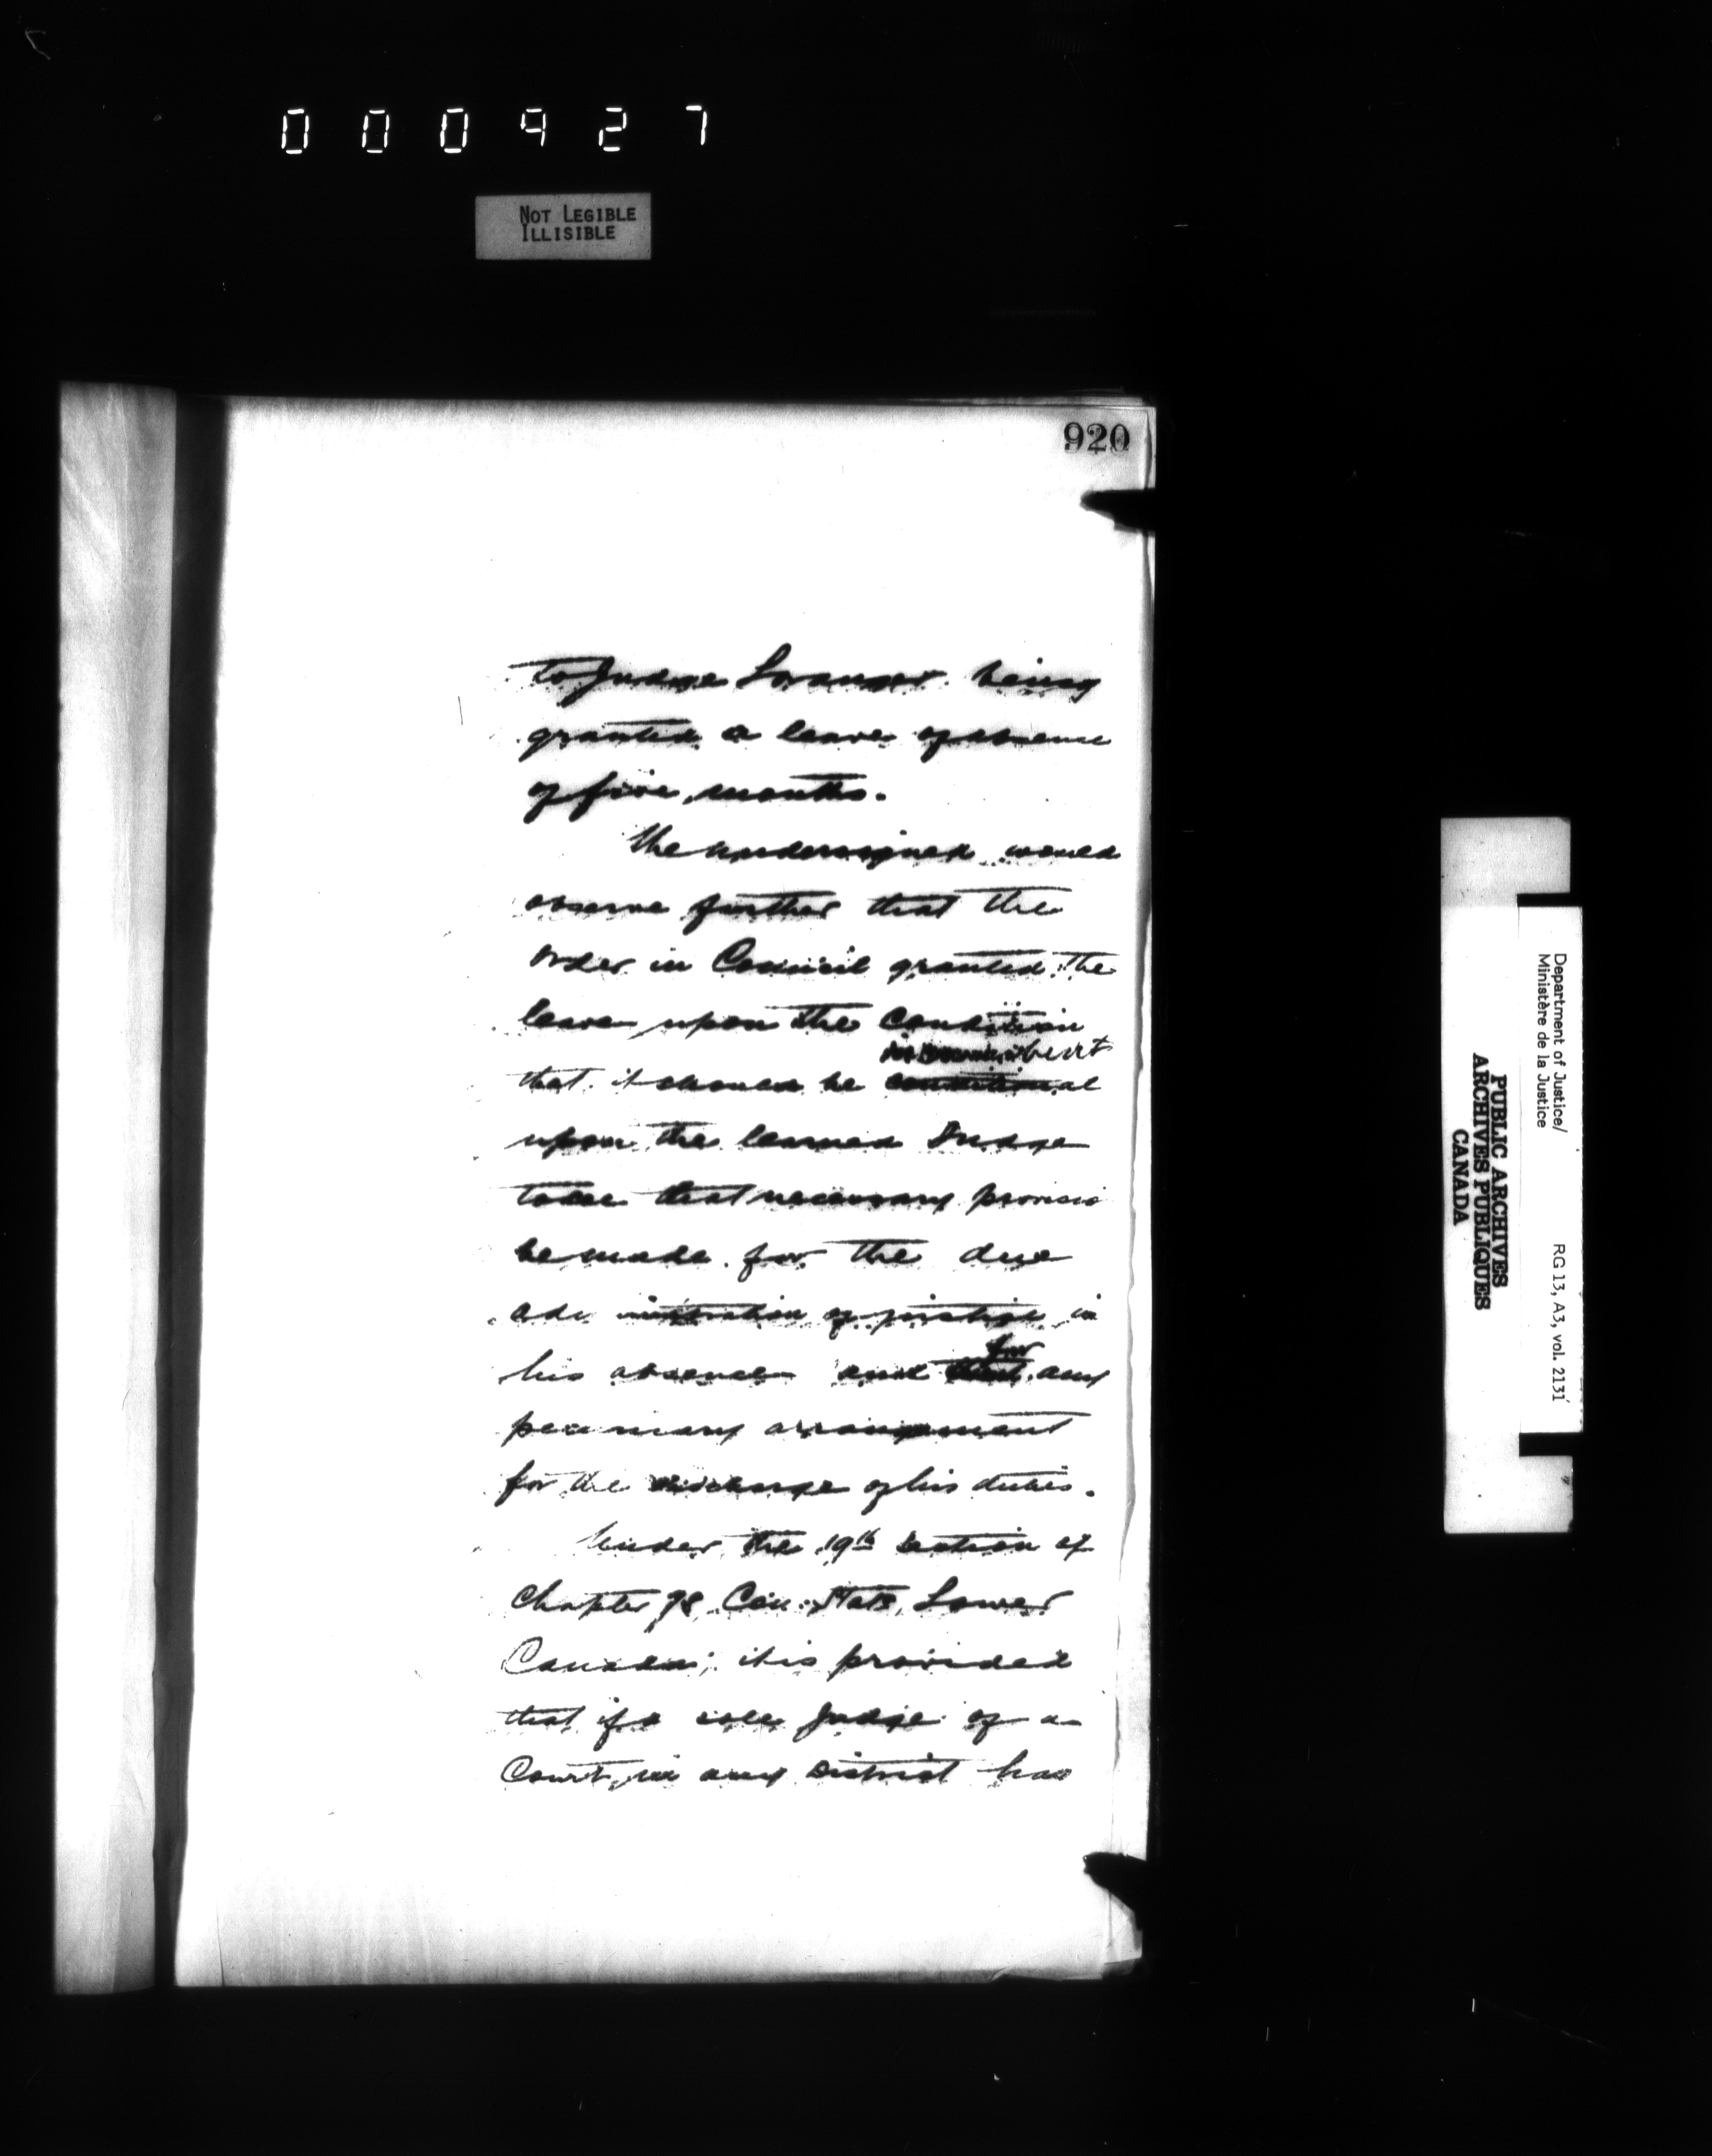 000927
NOT LEGIBLE
ILLISIBLE
920
to Judge Loranger being
granted a leave of absence
of five months.
The undersigned would
observe further that the
Order in Council granted the
leave upon the condition
incumbent
that it should be conditional
upon the learned Judge
to see that necessary provisio
be made for the due
administration of justice in
for
his absence and any
pecuniary arrangement
for the discharge of his duties.
Under the 19th section of
Chapter 78 Con. Stats. Lower
Canada; it is provided
that if a sole Judge of a
Court, in any District has
Department of Justice/
Ministère de la Justice
RG 13, A3, vol. 2131
PUBLIC ARCHIVES
ARCHIVES PUBLIQUES
CANADA